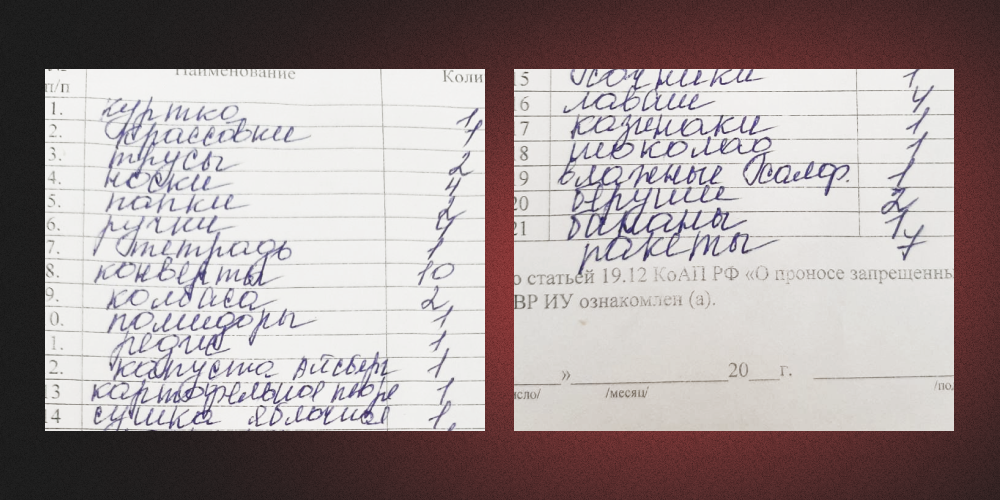 Наименование
Коли
п/п
1. куртка 1
2. кроссовки 1
3. трусы 2
4. носки 4
5. папки 2
6. ручки 4
7. тетрадь 1
8. конверты 10
9. колбаса 2
0. помидоры 1
1. редис 1
2. капуста айсберг 1
13 картофельное пюре 1
14 сушка яблочная 1
15 1
16 лаваш 4
17 казинаки 1
18 шоколад 1
19 влажные салф. 1
20 беруши 2
21 бананы 1
ракеты 7
о статьей 19.12 КоАП РФ «О проносе запрещенны
ВР ИУ ознакомлен (а).
» 20 г.
исло/ /месяц/ /по